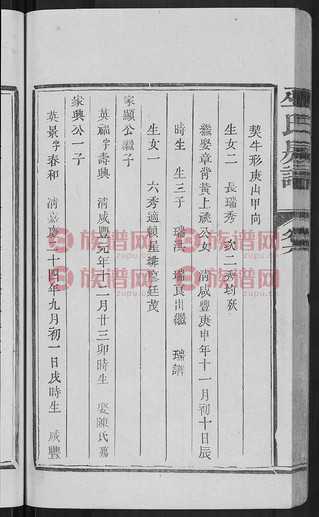 契牛形庚山甲向
生女二 長瑞秀 次二秀均殀
繼娶章背黃上祧公女 清咸豐庚申年十一月初十日辰
時生 生三子 瑞漢 瑞真出繼 瑞譜
生女一 六秀適賴屋排 廷茂
家顯公繼子
英福字壽興 清咸豐元年十二月廿三卯時生 娶陳氏
家興公一子
英景字春和 清嘉慶 十四年九月初一日戌時生 咸豐
族谱网
族谱网
族谱网
族谱网
族谱网
族谱网